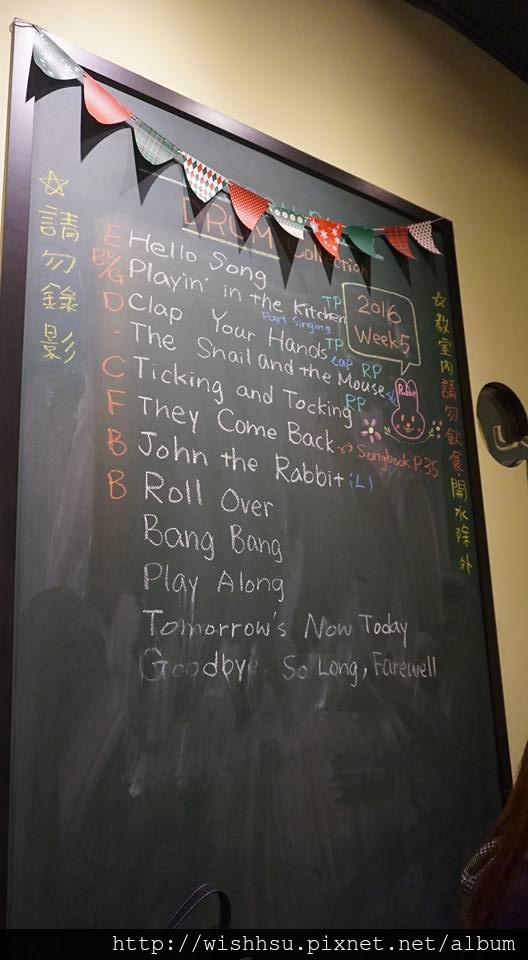 ☆請勿錄影
DRUM Collection
E Hello Song
B/G Playin' in the Kitchen TP
D Clap Your Hands TP
Part Singing
- The Snail and the Mouse Lap RP
C Ticking and Tocking RP
F They Come Back → Songbook P35
B John the Rabbit (L)
B Roll Over
Bang Bang
Play Along
Tomorrow's Now Today
Goodbye. So Long, Farewell
2016
Week5
Rabbit
☆教室內請勿飲食.開水除外
http://wishhsu.pixnet.net/album